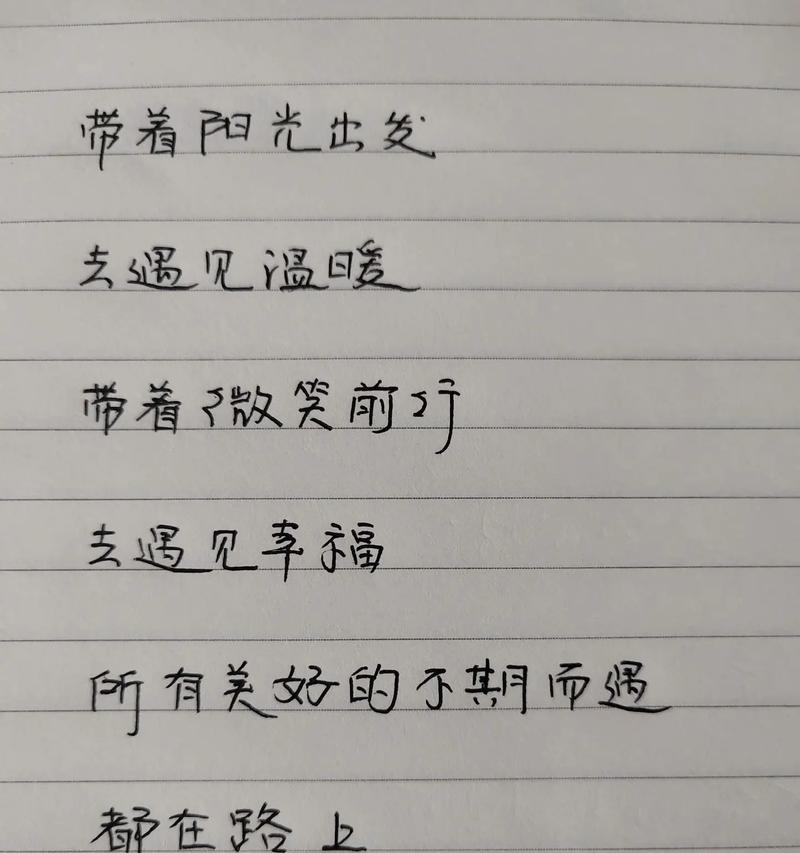 带着阳光出发
去遇见温暖
带着微笑前行
去遇见幸福
所有美好的不期而遇
都在路上